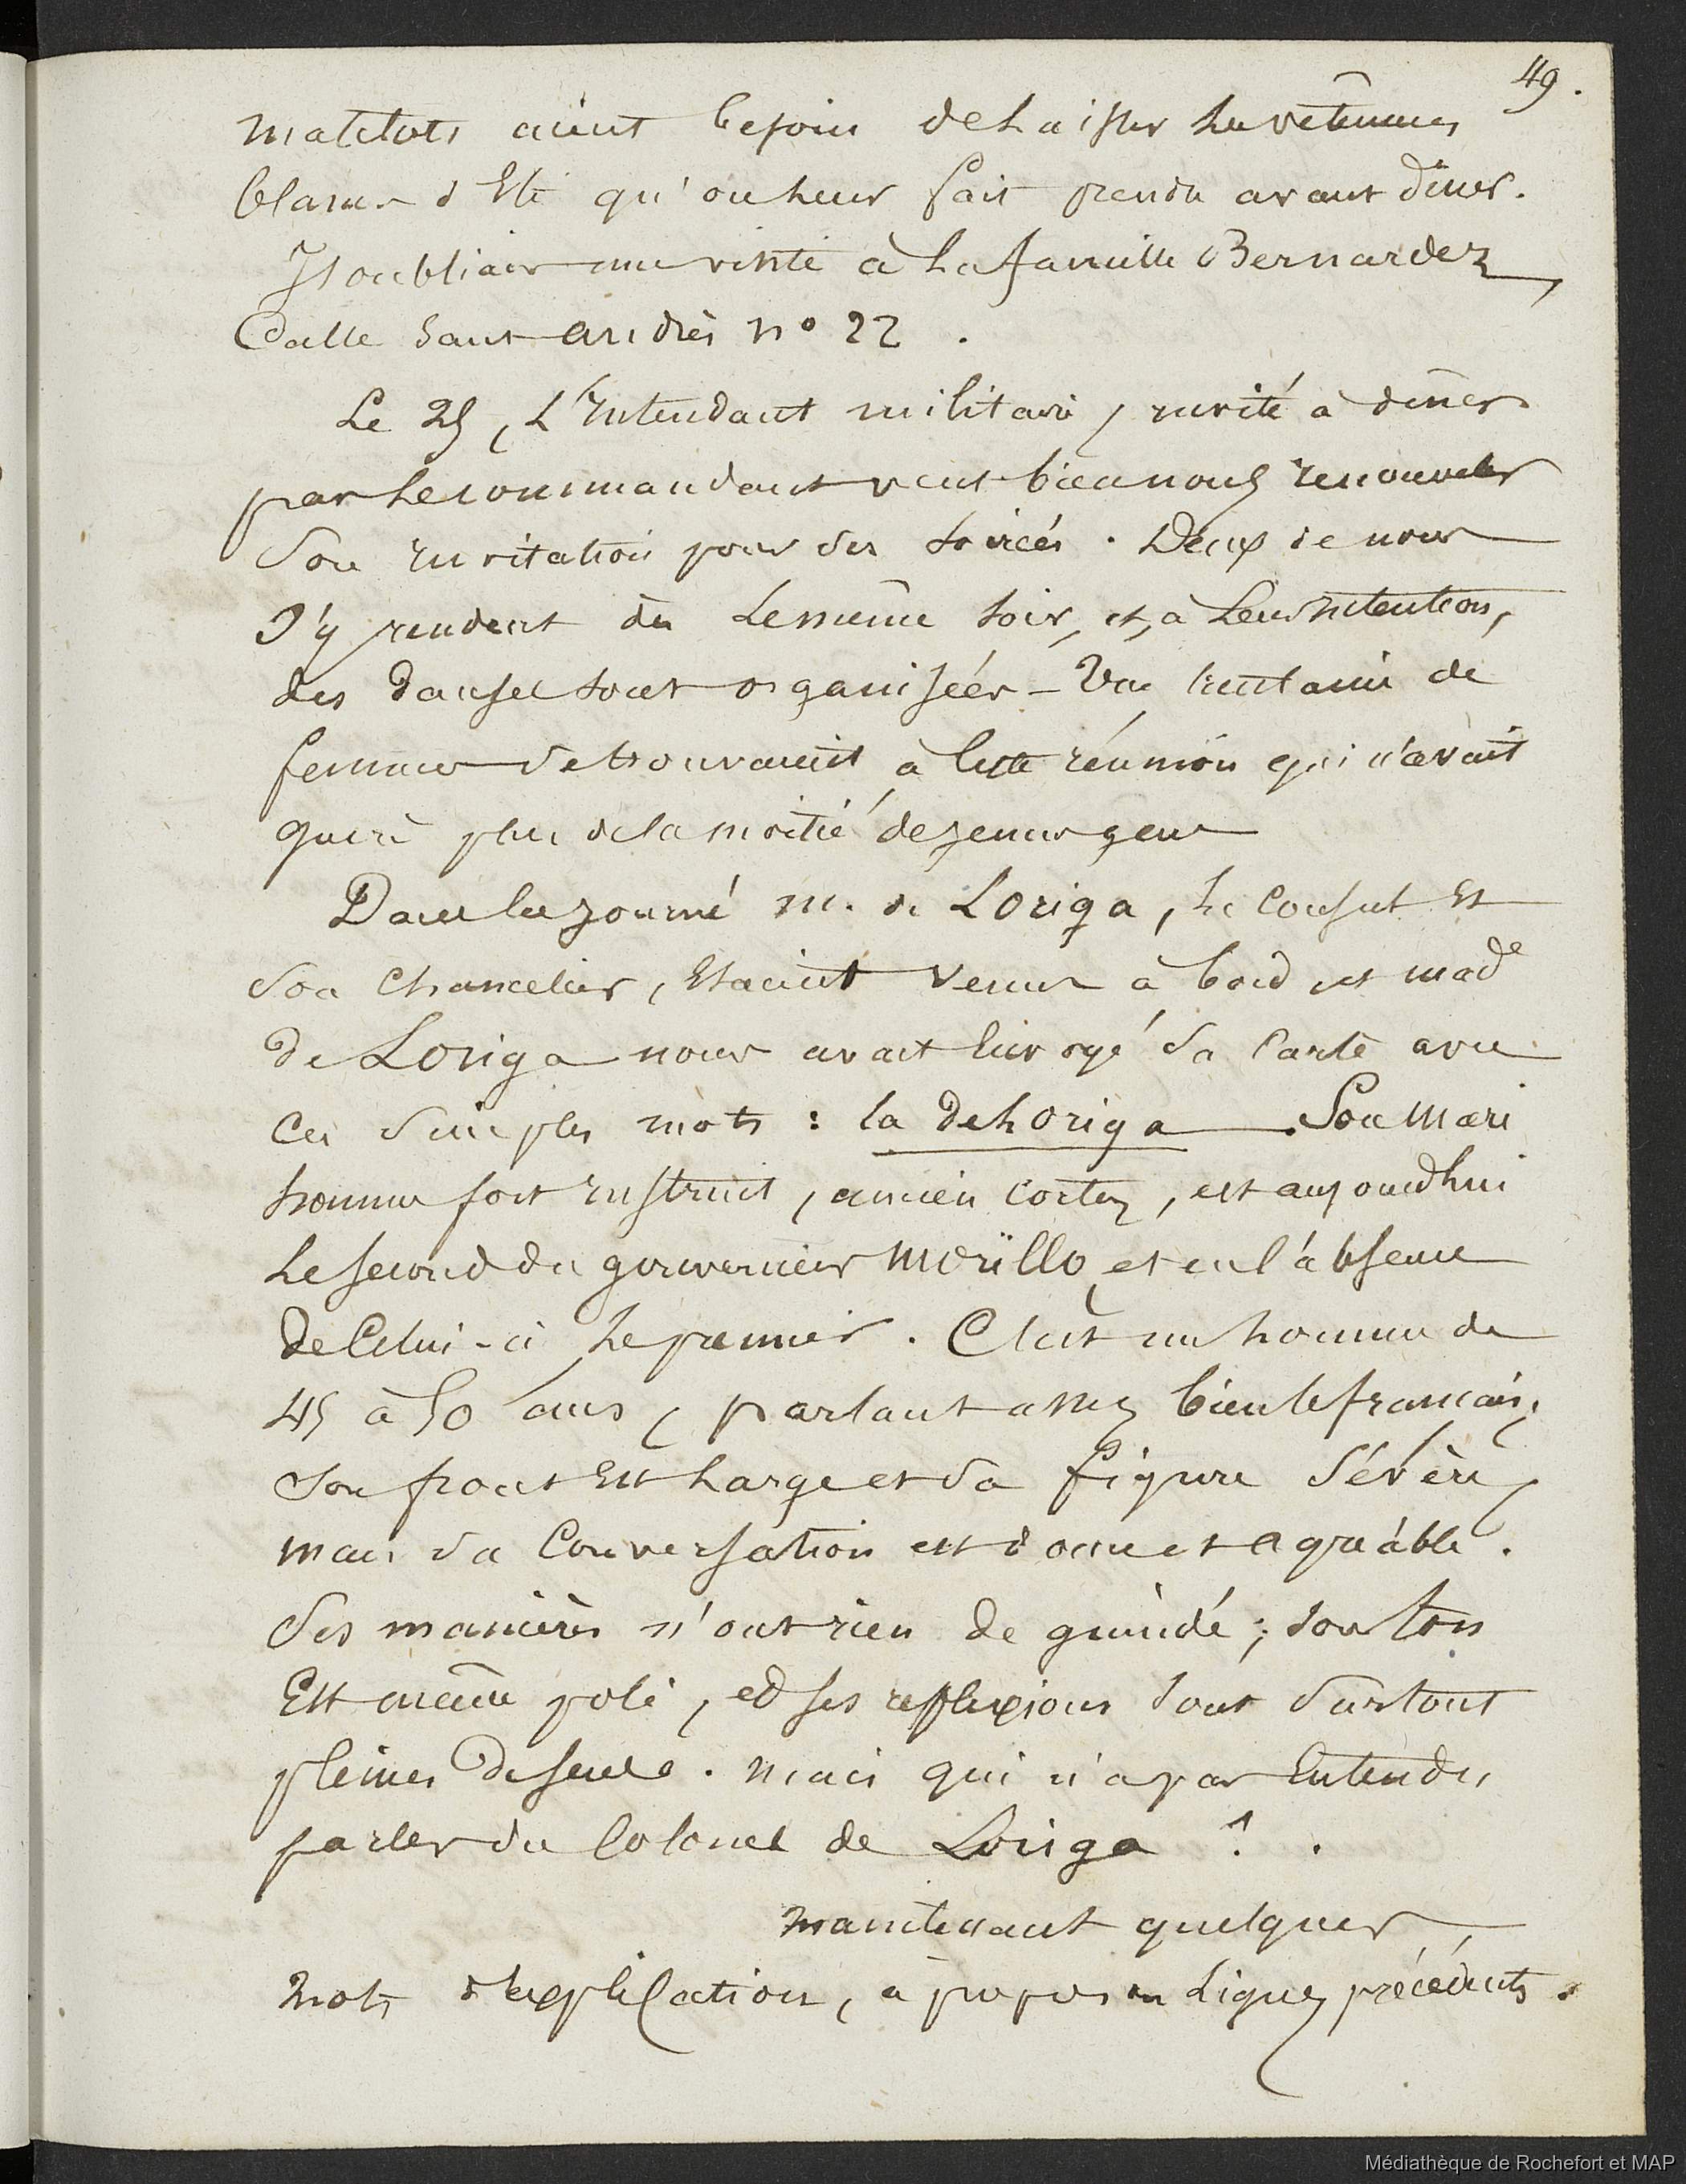 49.
matelots aient besoin de laisser les vêtemens
blancs d'Eté qu'on leur fait prendre avant diner.
J'oubliais une visite à la famille Bernardez,
Calle Sant Andrès nº 22.
Le 25, L'Intendant militaire, invité à dîner
par le commandant veut bien nous renouveler
son invitation pour ses soirées. Deux de nous
s'y rendent dès le même soir, et, à leur Intention,
des danses sont organisées - Une trentaine de
femmes se trouvaient à cette réunion qui n'avait
guère plus de la moitié de jeunes gens
Dans la journé m. de Loriga, le Consul Et
son Chancelier, Etaient venus à bord et mad^e
de Loriga nous avait envoyé sa carte avec
ces simples mots : la de Loriga. Son mari
homme fort instruit, ancien cortez, est aujourdhui
le second du gouverneur Morillo et en l'absence
de Celui-ci le premier. C'est un homme de
45 à 50 ans, parlant assez bien le français,
son front Est large et sa figure sévère,
mais sa Conversation est douce et agréable.
Ses manières n'ont rien de guindé ; son ton
Est même poli, et ses reflexions sont surtout
pleines de sens. mais qui n'a pas Entendu
parler du Colonel de Loriga ? .
maintenant quelques
mots d'explication, à propos des Lignes précédents.
Médiathèque de Rochefort et MAP